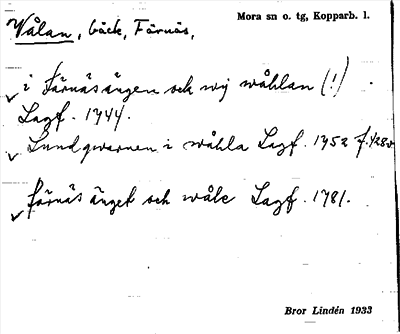 Wålan, bäck, Färnäs,
Mora sn o. tg, Kopparb. l.
i Färnäs ängen och wij wåhlan (!)
Lagf. 1744.
Lundqwarnen i wåhla Lagf. 1752 f. 428v
färnäs änget och wåle Lagf. 1781.
Bror Lindén 1933